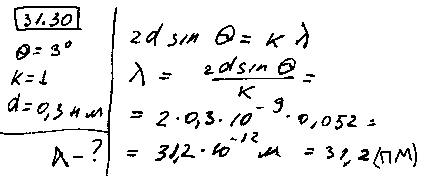 31.30
Θ = 3°
K = 1
d = 0,3 нм
λ - ?
2d sin Θ = K λ
λ = 2d sin Θ / K =
= 2 · 0,3 · 10^-9 · 0,052 =
= 31,2 · 10^-12 м = 31,2 (пм)